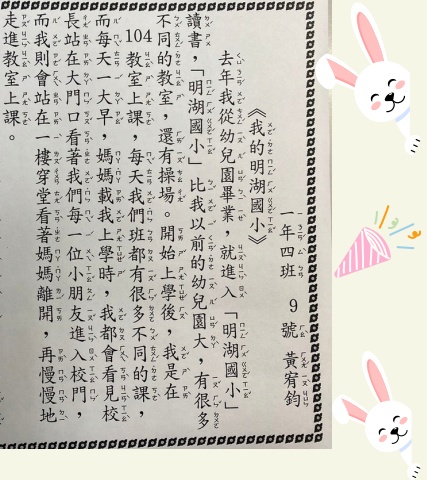 《我的明湖國小》
一年四班 9號 黃宥鈞
去年我從幼兒園畢業，就進入「明湖國小」
讀書，「明湖國小」比我以前的幼兒園大，有很多
不同的教室，還有操場。開始上學後，我是在
104教室上課，每天我們班都有很多不同的課，
而每天一大早，媽媽載我上學時，我都會看見校
長站在大門口看著我們每一位小朋友進入校門，
而我則會站在一樓穿堂看著媽媽離開，再慢慢地
走進教室上課。